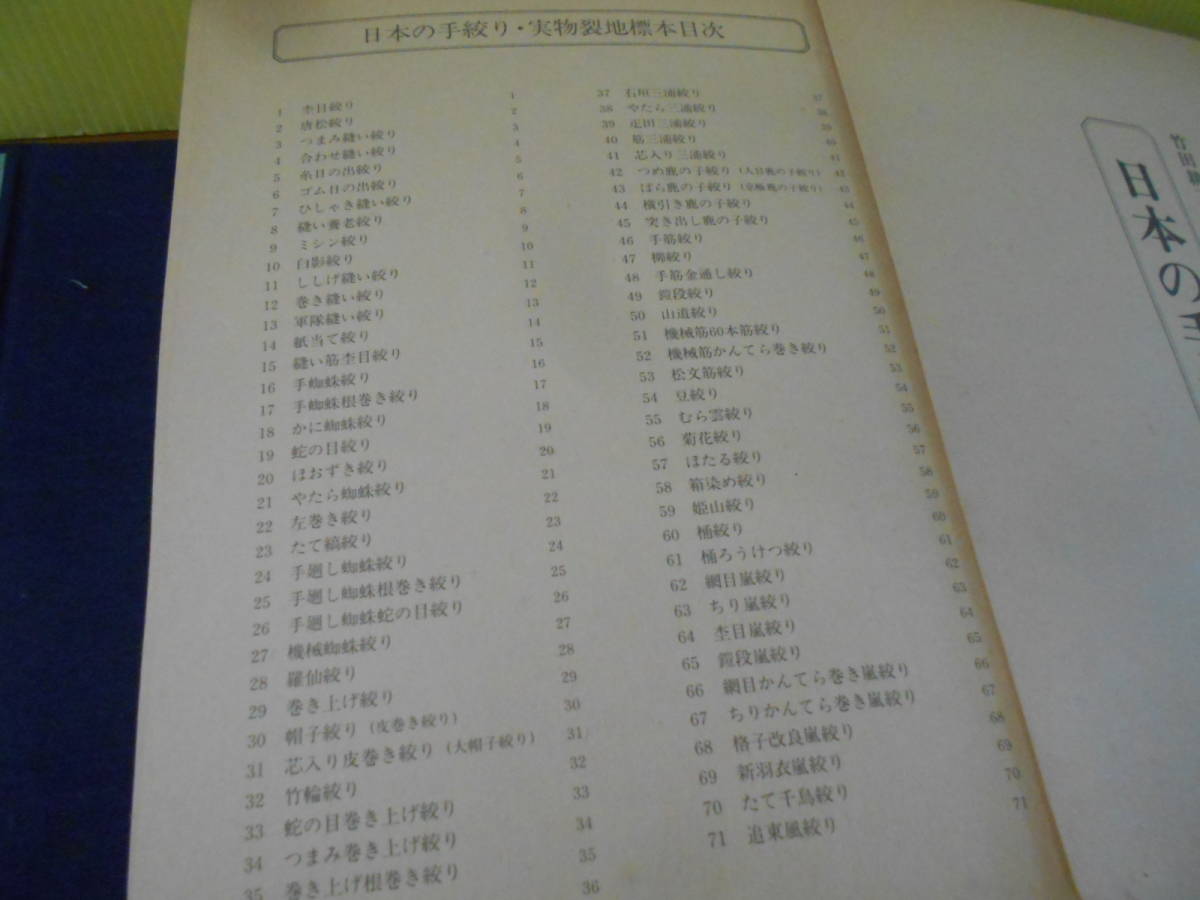 日本の手絞り・実物裂地標本目次
1 杢目絞り 1
2 唐松絞り 2
3 つまみ縫い絞り 3
4 合わせ縫い絞り 4
5 糸目の出絞り 5
6 ゴム目の出絞り 6
7 ひしゃき縫い絞り 7
8 縫い養老絞り 8
9 ミシン絞り 9
10 白影絞り 10
11 ししげ縫い絞り 11
12 巻き縫い絞り 12
13 軍隊縫い絞り 13
14 紙当て絞り 14
15 縫い筋杢目絞り 15
16 手蜘蛛絞り 16
17 手蜘蛛根巻き絞り 17
18 かに蜘蛛絞り 18
19 蛇の目絞り 19
20 ほおずき絞り 20
21 やたら蜘蛛絞り 21
22 左巻き絞り 22
23 たて縞絞り 23
24 手廻し蜘蛛絞り 24
25 手廻し蜘蛛根巻き絞り 25
26 手廻し蜘蛛蛇の目絞り 26
27 機械蜘蛛絞り 27
28 羅仙絞り 28
29 巻き上げ絞り 29
30 帽子絞り（皮巻き絞り） 30
31 芯入り皮巻き絞り（大帽子絞り） 31
32 竹輪絞り 32
33 蛇の目巻き上げ絞り 33
34 つまみ巻き上げ絞り 34
35 巻き上げ根巻き絞り 35
36
37 石垣三浦絞り 37
38 やたら三浦絞り 38
39 疋田三浦絞り 39
40 筋三浦絞り 40
41 芯入り三浦絞り 41
42 つめ鹿の子絞り（人目鹿の子絞り） 42
43 ばら鹿の子絞り（京極鹿の子絞り） 43
44 横引き鹿の子絞り 44
45 突き出し鹿の子絞り 45
46 手筋絞り 46
47 柳絞り 47
48 手筋金通し絞り 48
49 鎧段絞り 49
50 山道絞り 50
51 機械筋60本筋絞り 51
52 機械筋かんてら巻き絞り 52
53 松文筋絞り 53
54 豆絞り 54
55 むら雲絞り 55
56 菊花絞り 56
57 ほたる絞り 57
58 箱染め絞り 58
59 姫山絞り 59
60 桶絞り 60
61 桶ろうけつ絞り 61
62 網目嵐絞り 62
63 ちり嵐絞り 63
64 杢目嵐絞り 64
65 鎧段嵐絞り 65
66 網目かんてら巻き嵐絞り 66
67 ちりかんてら巻き嵐絞り 67
68 格子改良嵐絞り 68
69 新羽衣嵐絞り 69
70 たて千鳥絞り 70
71 追東風絞り 71
竹田
日本の手